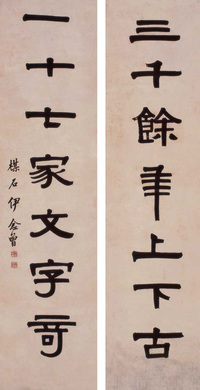 三千餘年上下古
一十七家文字奇
楳石伊念曾